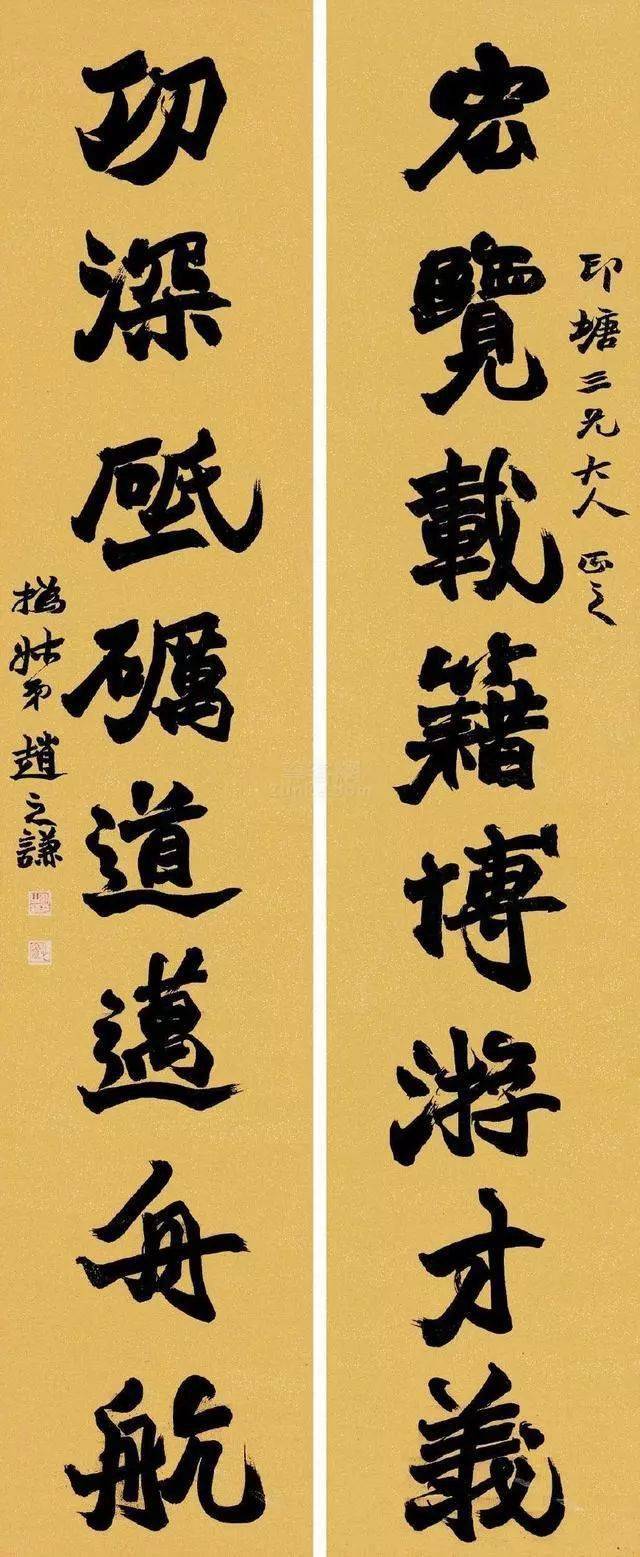 宏覽載籍博游才義
印塘三兄大人正之
功深砥礪道邁舟航
撝尗弟趙之謙